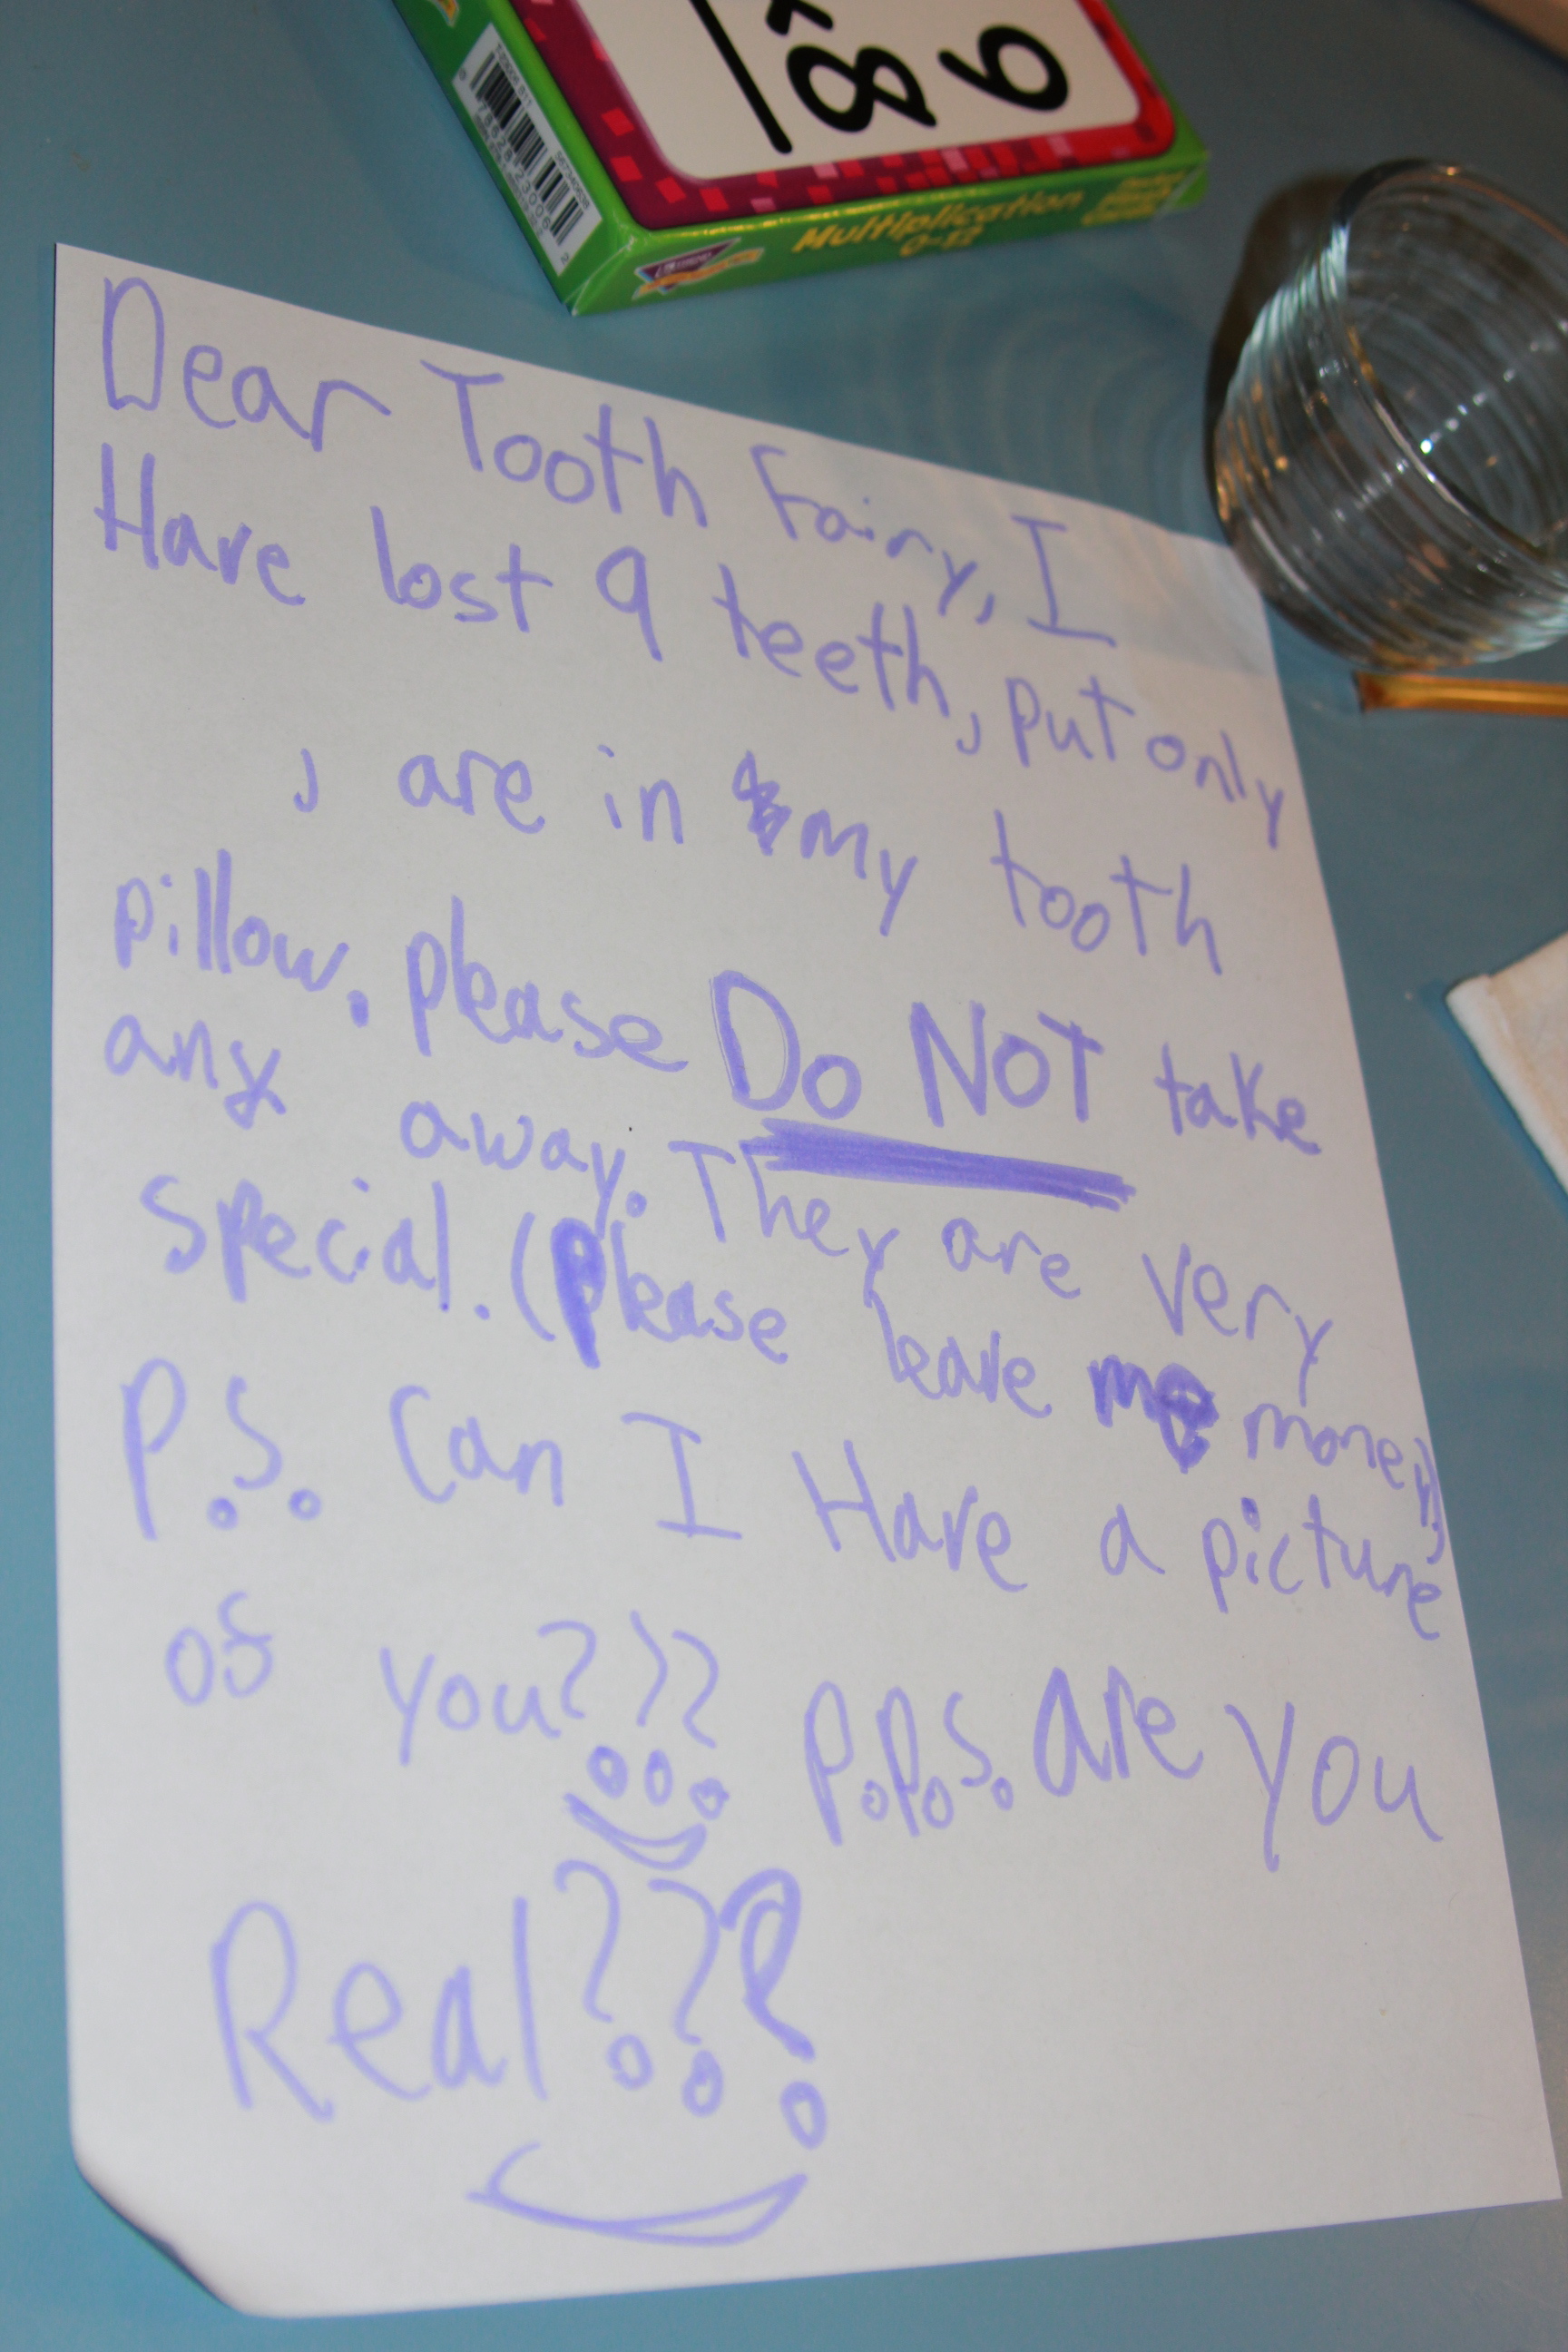 9
×8
Multiplication
0-12
TREND
Dear Tooth Fairy, I
Have lost 9 teeth, put only
are in my tooth
pillow. please Do NOT take
any away. They are very
special. (please leave me money)
P.S. Can I Have a picture
of you???
P.P.S. Are you
Real???